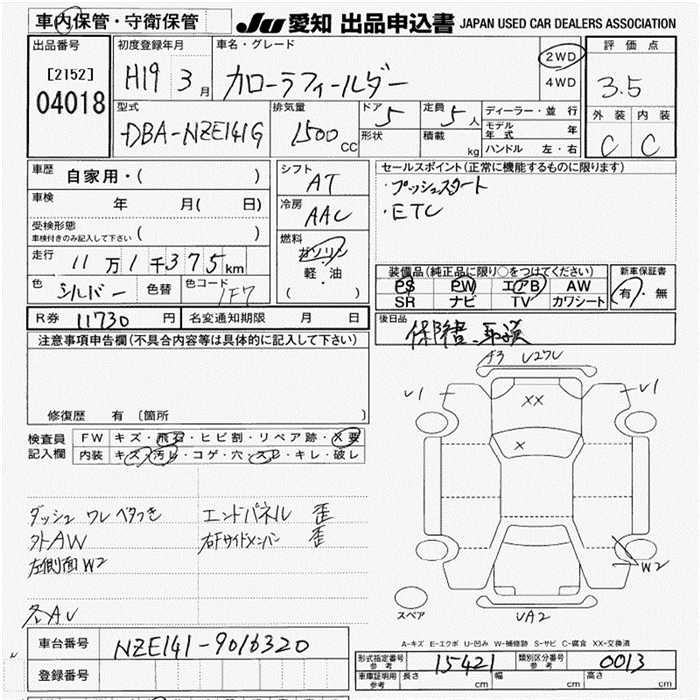 車内保管・守衛保管
JU 愛知 出品申込書 JAPAN USED CAR DEALERS ASSOCIATION
出品番号
[2152]
04018
初度登録年月
H19 3月
車名・グレード
カローラフィールダー
2WD
4WD
評価点
3.5
外装 内装
C C
型式
DBA-NZE141G
排気量
1500CC
ドア 5
形状
定員 5人
積載 kg
ディーラー・並行
モデル年式 年
ハンドル 左・右
車歴 自家用・( )
車検 年 月( 日)
受検形態
車検付きのみ記入して下さい ( )
走行 11万1千375km
色 シルバー 色替 色コード 1F7
シフト AT
冷房 AAC
燃料
ガソリン
軽・油
( )
セールスポイント(正常に機能するものに限ります)
・プッシュスタート
・ETC
装備品(純正品に限り○をつけてください)
PS PW エアB AW
SR ナビ TV カワシート
新車保証書
有・無
R券 11730円 名変通知期限 月 日
後日品
保障書、取説
注意事項申告欄(不具合内容等は具体的に記入して下さい)
修復歴 有 [箇所
検査員記入欄
FW キズ・飛石・ヒビ割・リペア跡・X要
内装 キズ・汚レ・コゲ・穴・スレ・キレ・破レ
A3 U27U
U1
U1
XX
X
ダッシュ ワレ ベタつき
外AW
左側面W2
各AU
エンドパネル 歪
右Fサイドメンバー 歪
W2
スペア
UA2
A-キズ E-エクボ U-凹み W-補修跡 S-サビ C-腐食 XX-交換済
車台番号 NZE141-9016320
登録番号
形式指定番号 参考 15421
類別区分番号 参考 0013
車庫証明用 参考 長さ cm 幅 cm 高さ cm